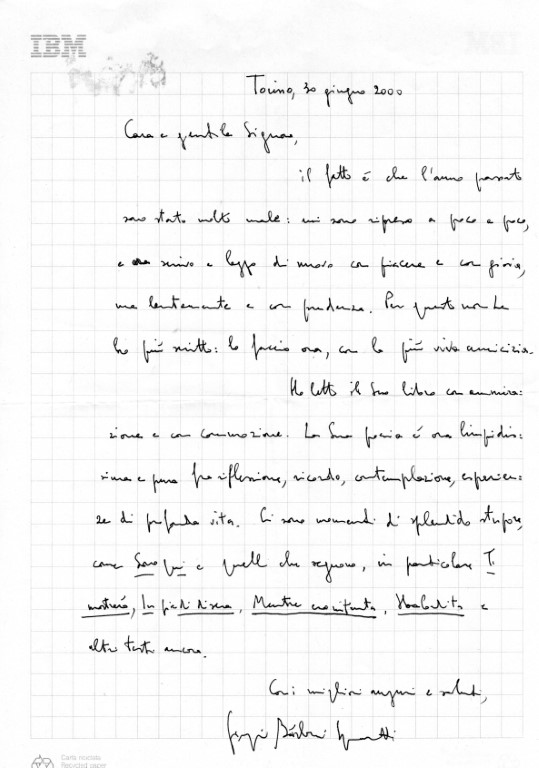 IBM
Torino, 30 giugno 2000
Cara e gentile Signora,
il fatto è che l'anno passato
sono stato molto male: mi sono ripreso a poco a poco,
e ora scrivo e leggo di nuovo con piacere e con gioia,
ma lentamente e con prudenza. Per questo non Le
ho più scritto: lo faccio ora, con la più viva amicizia.
Ho letto il Suo libro con ammira:
zione e con commozione. La Sua poesia è ora limpidis:
sima e pura fra riflessione, ricordo, contemplazione, esperien:
ze di profonda vita. Ci sono momenti di splendido stupore,
come Sono qui e quelli che seguono, in particolare Ti
mostrerò, In piedi di sera, Mentre ero, e
altri testi ancora.
Con i migliori auguri e saluti,
Giorgio Bàrberi Squarotti
Carta riciclata
Recycled paper